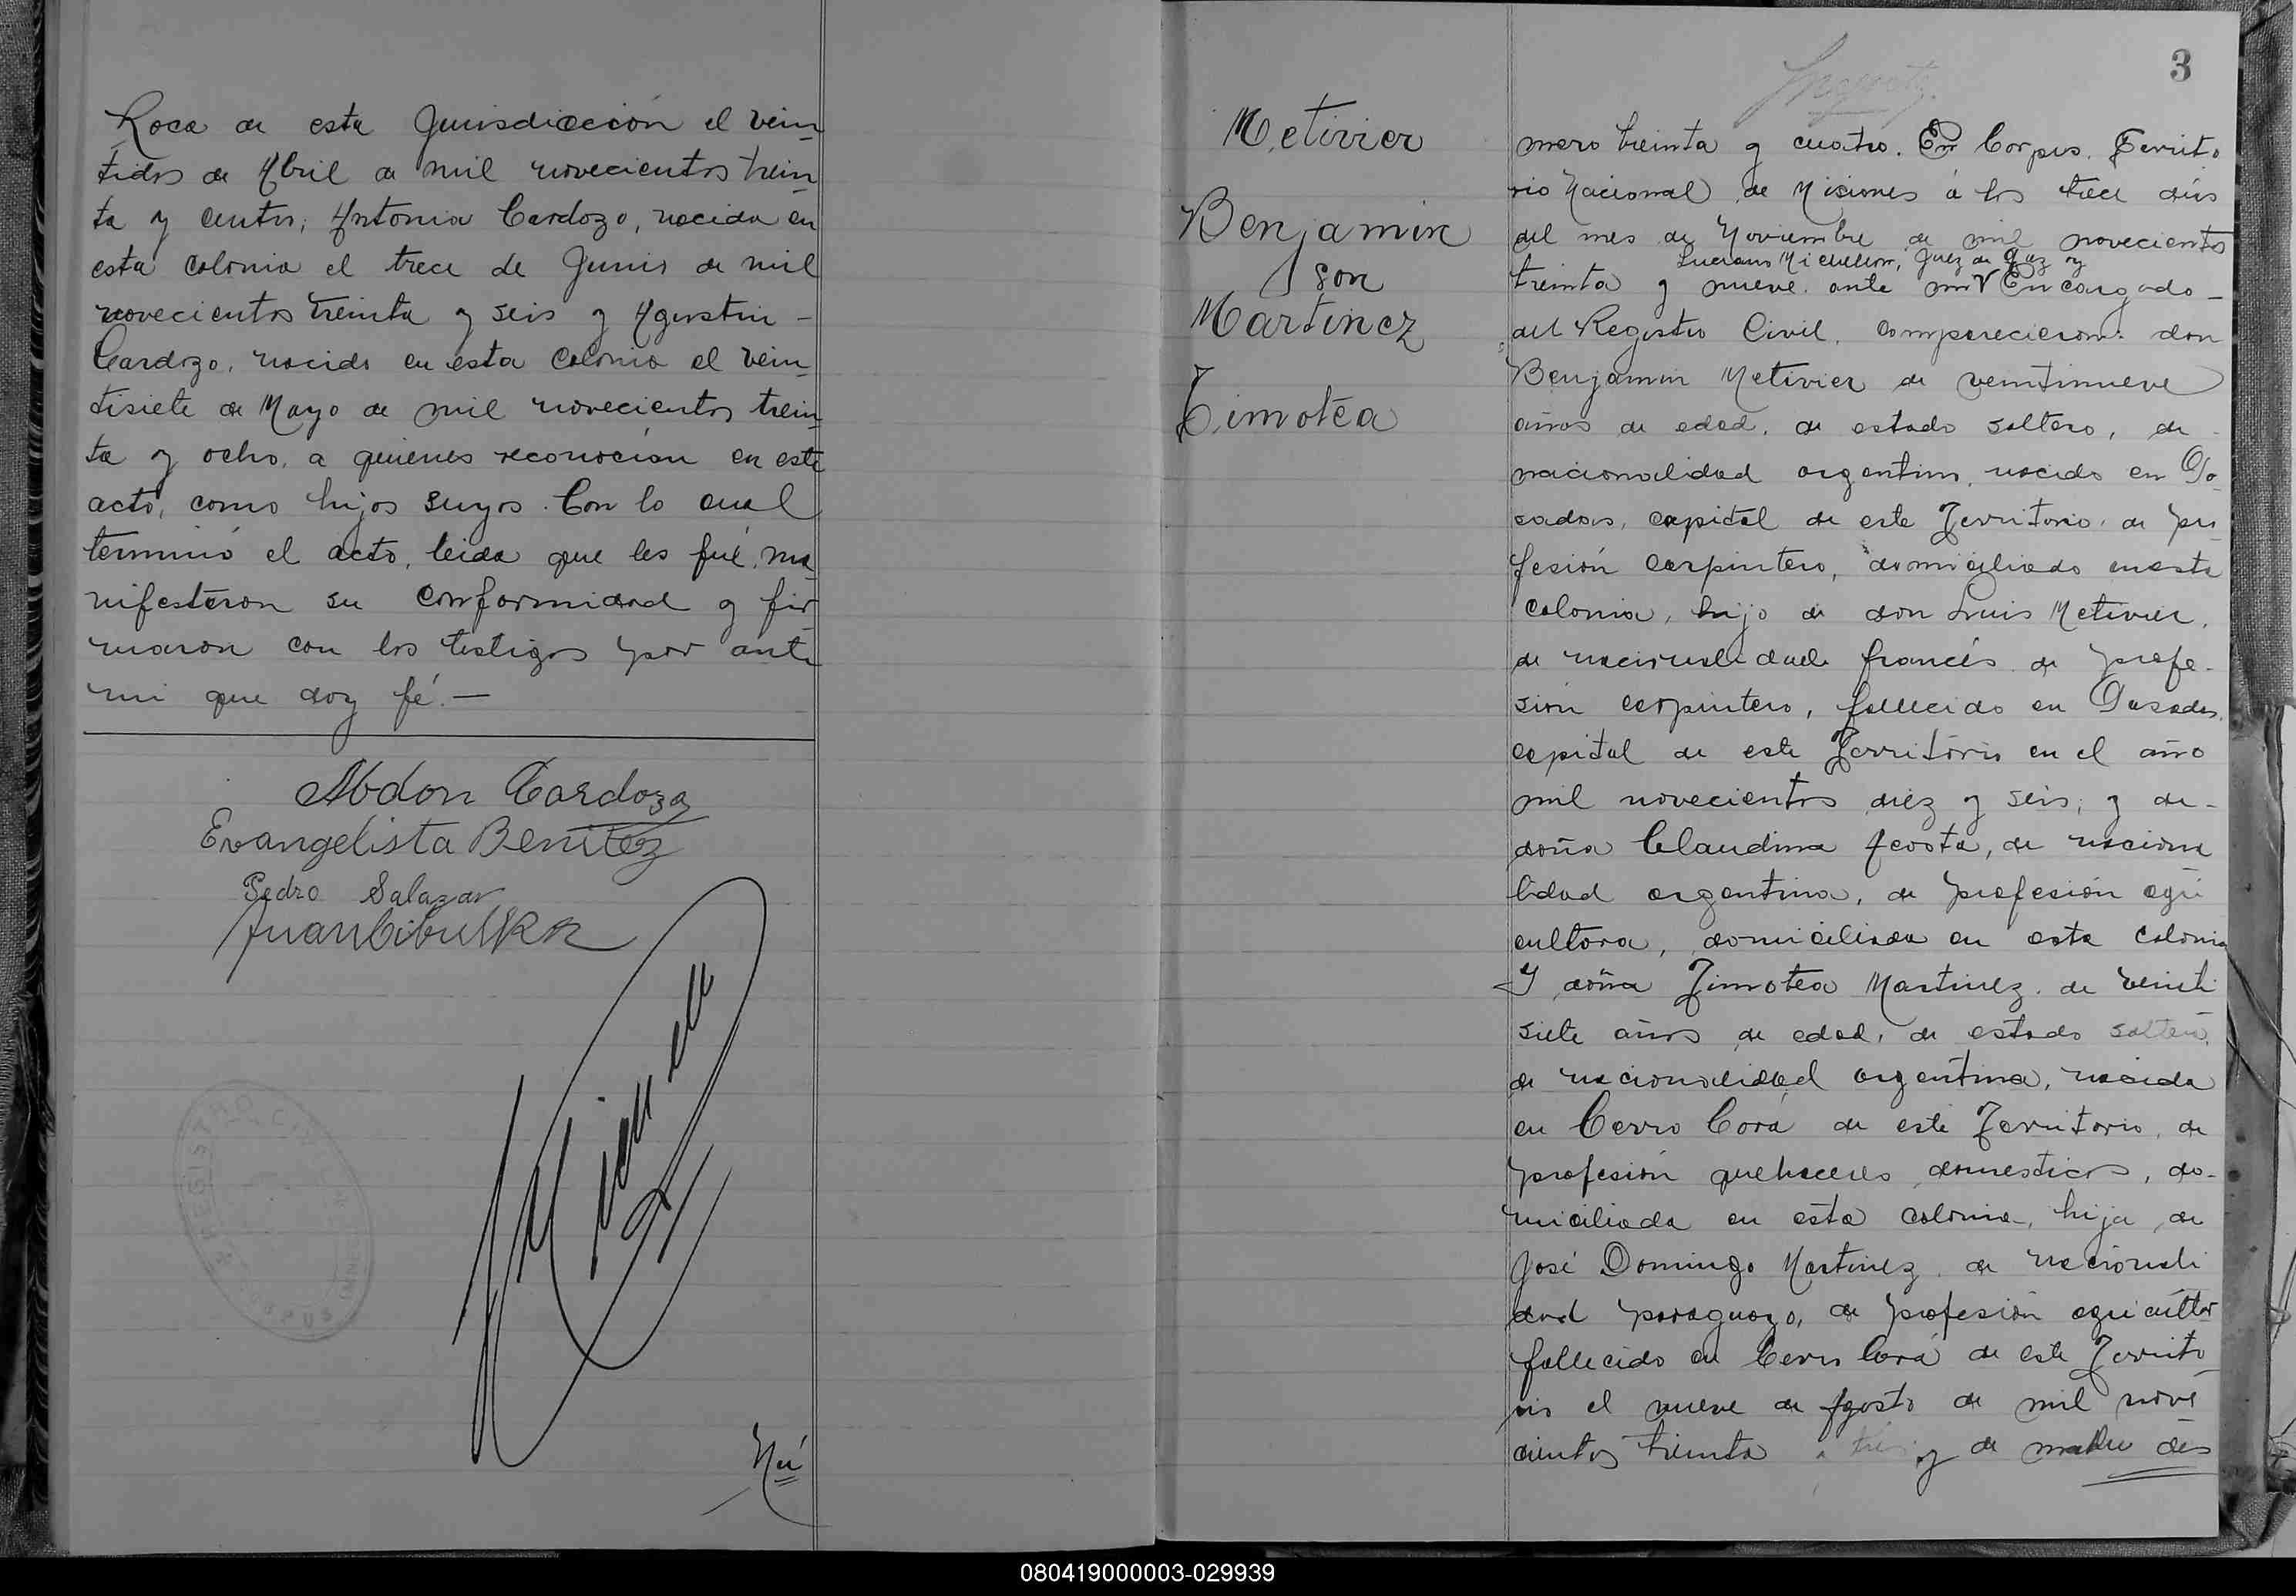 Roca de esta Jurisdicción el vein
tidos de Abril de mil novecientos trein
ta y cuatro; Antonia Cardozo, nacida en
esta colonia el trece de Junio de mil
novecientos treinta y seis y Agustin -
Cardozo, nacido en esta colonia el vein
tisiete de Mayo de mil novecientos trein
ta y ocho, a quienes reconocian en este
acto, como hijos suyos. Con lo cual
terminó el acto, leida que les fué, ma
nifestaron su conformidad y fir
maron con los testigos por ante
mi que doy fé. —
Abdon Cardozo
Evangelista Benitez
Pedro Salazar
Juan Cibulska
REGISTRO CIVIL
CORPUS
Nú
3
Metivier
Benjamin
son
Martinez
Timotea
mero treinta y cuatro. En Corpus. Territo
rio Nacional de Misiones á los trece dias
del mes de Noviembre de mil novecientos
Luciano Juez de Paz y
treinta y nueve. ante mi Encargado -
del Registro Civil. comparecieron: don
Benjamin Metivier de veintinueve
años de edad, de estado soltero, de -
nacionalidad argentino, nacido en Po
sadas, capital de este Territorio, de pro
fesión carpintero, domiciliado en esta
colonia, hijo de don Luis Metivier,
de nacionalidade francés de profe-
sión carpintero, fallecido en Posadas
capital de este Territorio en el año
mil novecientos diez y seis; y de -
doña Claudina Acosta, de naciona
lidad argentina, de profesión agri
cultora, domiciliada en esta colonia
Y doña Timotea Martinez de veinti
siete años de edad, de estado soltera,
de nacionalidad argentina, nacida
en Cerro Corá de este Territorio, de
profesión quehaceres domesticos, do-
miciliada en esta colonia, hija de
José Domingo Martinez de nacionali
dad paraguayo, de profesión agricultor
fallecido en Cerro Corá de este Territo
rio el nueve de Agosto de mil nove
cientos treinta y de madre des
080419000003-029939